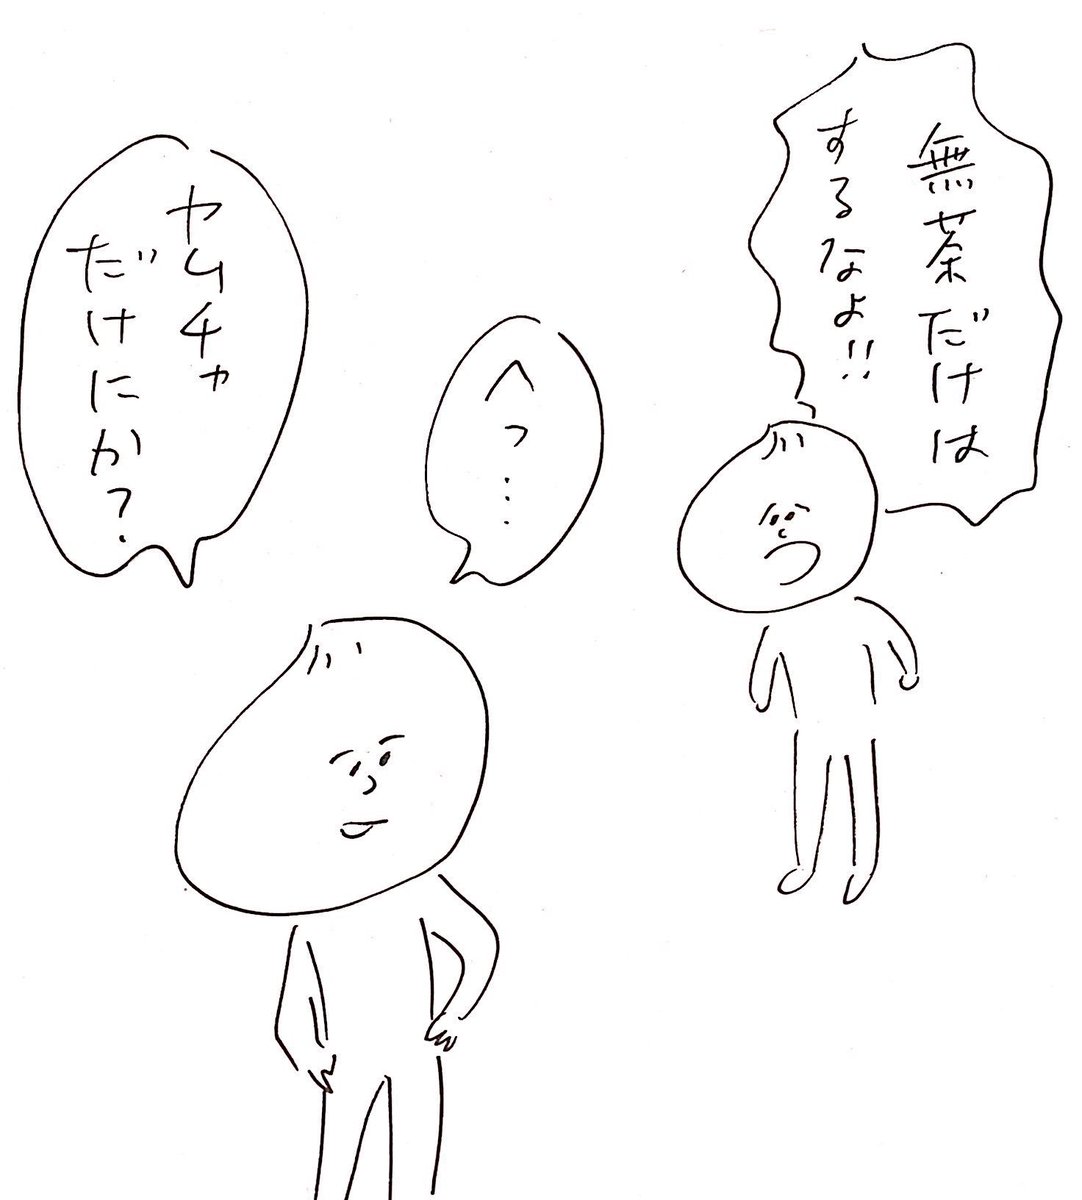 無茶だけは
するなよ!!
へっ…
ヤムチャ
だけにか?